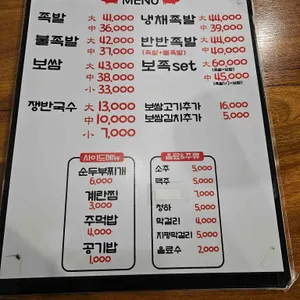 MENU
족발 大 41,000
中 36,000
냉채족발 大 44,000
中 39,000
불족발 大 42,000
中 37,000
반반족발 大 44,000
(족발+불족발) 中 40,000
보쌈 大 43,000
中 38,000
小 33,000
보족set 大 60,000
中 45,000
쟁반국수 大 13,000
中 10,000
小 7,000
보쌈고기추가 16,000
보쌈김치추가 5,000
사이드메뉴
순두부찌개
6,000
계란찜
3,000
주먹밥
4,000
공기밥
1,000
음료&주류
소주 5,000
맥주 5,000
7,000
청하 5,000
막걸리 4,000
지평막걸리 5,000
음료수 2,000